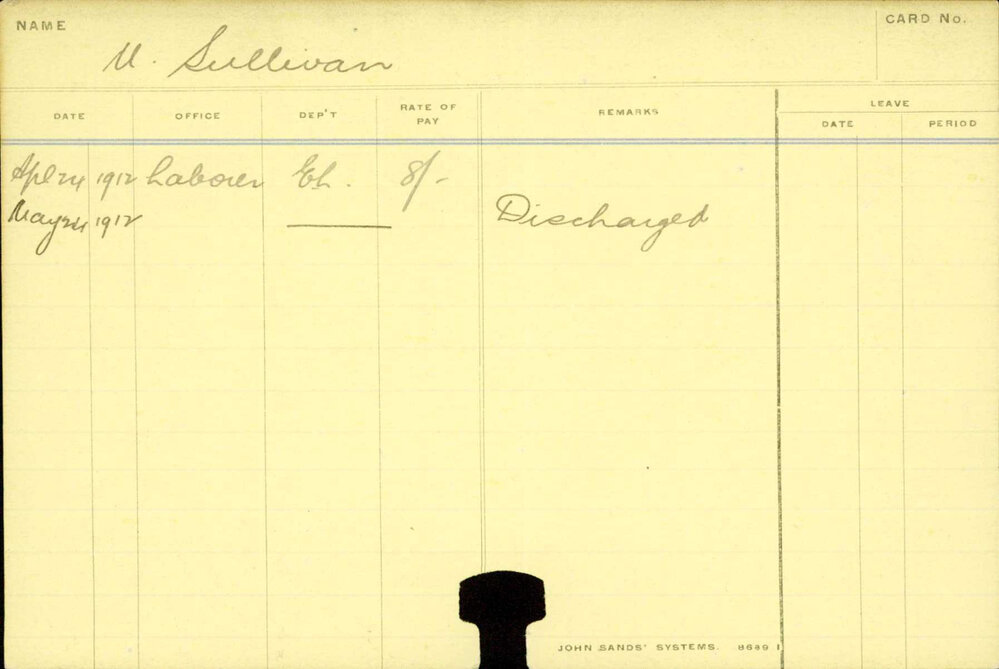 NAME
CARD No.
M. Sullivan
DATE OFFICE DEP'T RATE OF PAY REMARKS LEAVE
DATE PERIOD
Apl 24 1912 Laborer Eh. 8/-
May 24 1912 Discharged
JOHN SANDS' SYSTEMS. 8689